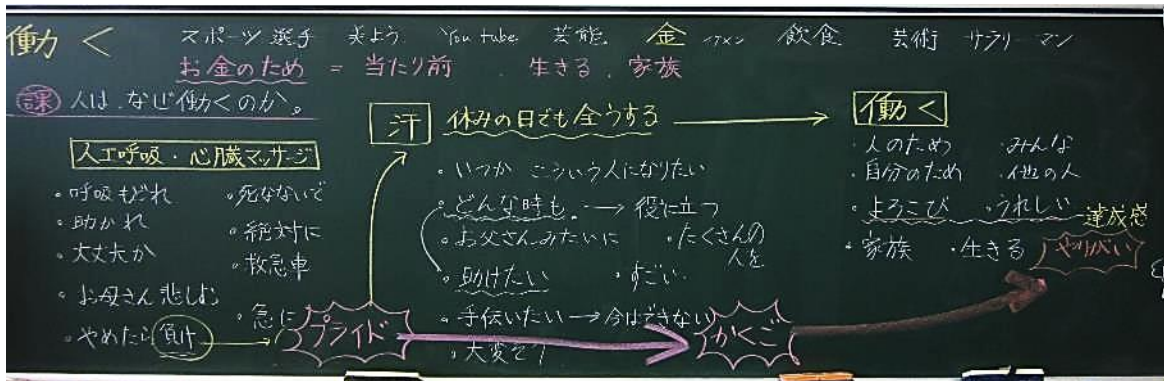 働く スポーツ選手 美よう YouTube 芸能 金 イケメン 飲食 芸術 サラリーマン
お金のため = 当たり前 . 生きる . 家族
課 人は、なぜ働くのか。
人工呼吸・心臓マッサージ
・呼吸もどれ ・死なないで
・助かれ ・絶対に
・大丈夫か ・救急車
・お母さん悲しむ
・やめたら負け ・急に
プライド
汗 休みの日でも全うする
・いつか こういう人になりたい
・どんな時も → 役に立つ
・お父さんみたいに ・たくさんの人を
・助けたい ・すごい
・手伝いたい → 今はできない
・大変そう
かくご
働く
・人のため ・みんな
・自分のため ・他の人
・よろこび ・うれしい 達成感
・家族 ・生きる やりがい